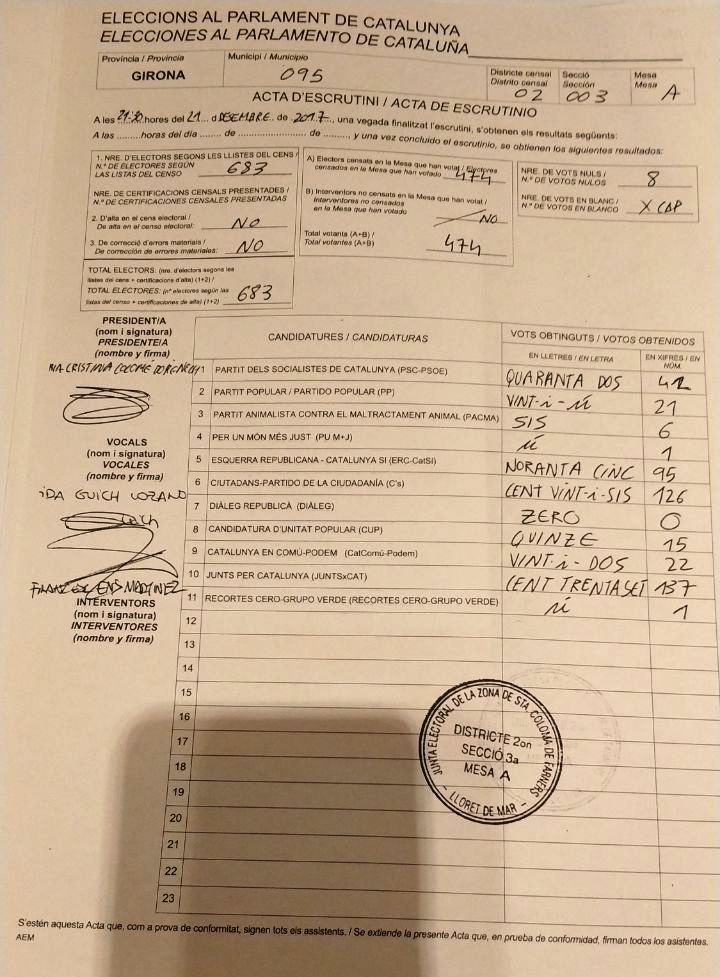 ELECCIONS AL PARLAMENT DE CATALUNYA
ELECCIONES AL PARLAMENTO DE CATALUÑA
Província / Provincia
GIRONA
Municipi / Municipio
095
Districte censal
Distrito censal
02
Secció
Sección
003
Mesa
Mesa
A
ACTA D'ESCRUTINI / ACTA DE ESCRUTINIO
A les 21:30 hores del 21 ... d DESEMBRE de 2017..., una vegada finalitzat l'escrutini, s'obtenen els resultats següents:
A las .........horas del día ....... de ...................... de ........., y una vez concluido el escrutinio, se obtienen los siguientes resultados:
1. NRE. D'ELECTORS SEGONS LES LLISTES DEL CENS /
N.º DE ELECTORES SEGÚN
LAS LISTAS DEL CENSO
683
NRE. DE CERTIFICACIONS CENSALS PRESENTADES /
N.º DE CERTIFICACIONES CENSALES PRESENTADAS
2. D'alta en el cens electoral /
De alta en el censo electoral:
NO
3. De correcció d'errors materials /
De corrección de errores materiales:
NO
TOTAL ELECTORS: (nre. d'electors segons les
llistes del cens + certificacions d'alta) (1+2) /
TOTAL ELECTORES: (nº electores según las
listas del censo + certificaciones de alta) (1+2)
683
A) Electors censats en la Mesa que han votat / Electores
censados en la Mesa que han votado
474
B) Interventors no censats en la Mesa que han votat /
Interventores no censados
en la Mesa que han votado
NO
Total votants (A+B) /
Total votantes (A+B)
474
NRE. DE VOTS NULS /
N.º DE VOTOS NULOS
8
NRE. DE VOTS EN BLANC /
N.º DE VOTOS EN BLANCO
X CAP
PRESIDENT/A
(nom i signatura)
PRESIDENTE/A
(nombre y firma)
VOCALS
(nom i signatura)
VOCALES
(nombre y firma)
IDA GUICH LOZANO
INTERVENTORS
(nom i signatura)
INTERVENTORES
(nombre y firma)
CANDIDATURES / CANDIDATURAS
VOTS OBTINGUTS / VOTOS OBTENIDOS
EN LLETRES / EN LETRA
EN XIFRES / EN NÚM.
1 PARTIT DELS SOCIALISTES DE CATALUNYA (PSC-PSOE) QUARANTA DOS 42
2 PARTIT POPULAR / PARTIDO POPULAR (PP) VINT-i-ú 21
3 PARTIT ANIMALISTA CONTRA EL MALTRACTAMENT ANIMAL (PACMA) SIS 6
4 PER UN MÓN MÉS JUST (PU M+J) ú 1
5 ESQUERRA REPUBLICANA - CATALUNYA SI (ERC-CatSI) NORANTA CINC 95
6 CIUTADANS-PARTIDO DE LA CIUDADANÍA (C's) CENT VINT-i-SIS 126
7 DIÀLEG REPUBLICÀ (DIÀLEG) ZERO 0
8 CANDIDATURA D'UNITAT POPULAR (CUP) QUINZE 15
9 CATALUNYA EN COMÚ-PODEM (CatComú-Podem) VINT-i-DOS 22
10 JUNTS PER CATALUNYA (JUNTSxCAT) CENT TRENTASET 137
11 RECORTES CERO-GRUPO VERDE (RECORTES CERO-GRUPO VERDE) ú 1
12
13
14
15
16
17
18
19
20
21
22
23
JUNTA ELECTORAL DE LA ZONA DE STA. COLOMA DE FARNERS
DISTRICTE 2on
SECCIÓ 3a
MESA A
- LLORET DE MAR -
S'estén aquesta Acta que, com a prova de conformitat, signen tots els assistents. / Se extiende la presente Acta que, en prueba de conformidad, firman todos los asistentes.
AEM